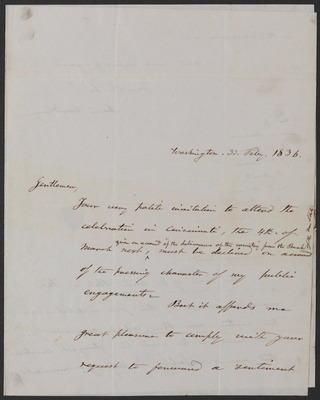 Washington. 22. Feby. 1836.
Gentlemen,
Your very polite invitation to attend the
celebration in Cincinnati, the 4th. of
given on account of the deliverance of the country from the Bank
March next, must be declined on account
of the pressing character of my public
engagements.
But it affords me
great pleasure to comply with your
request to forward a sentiment